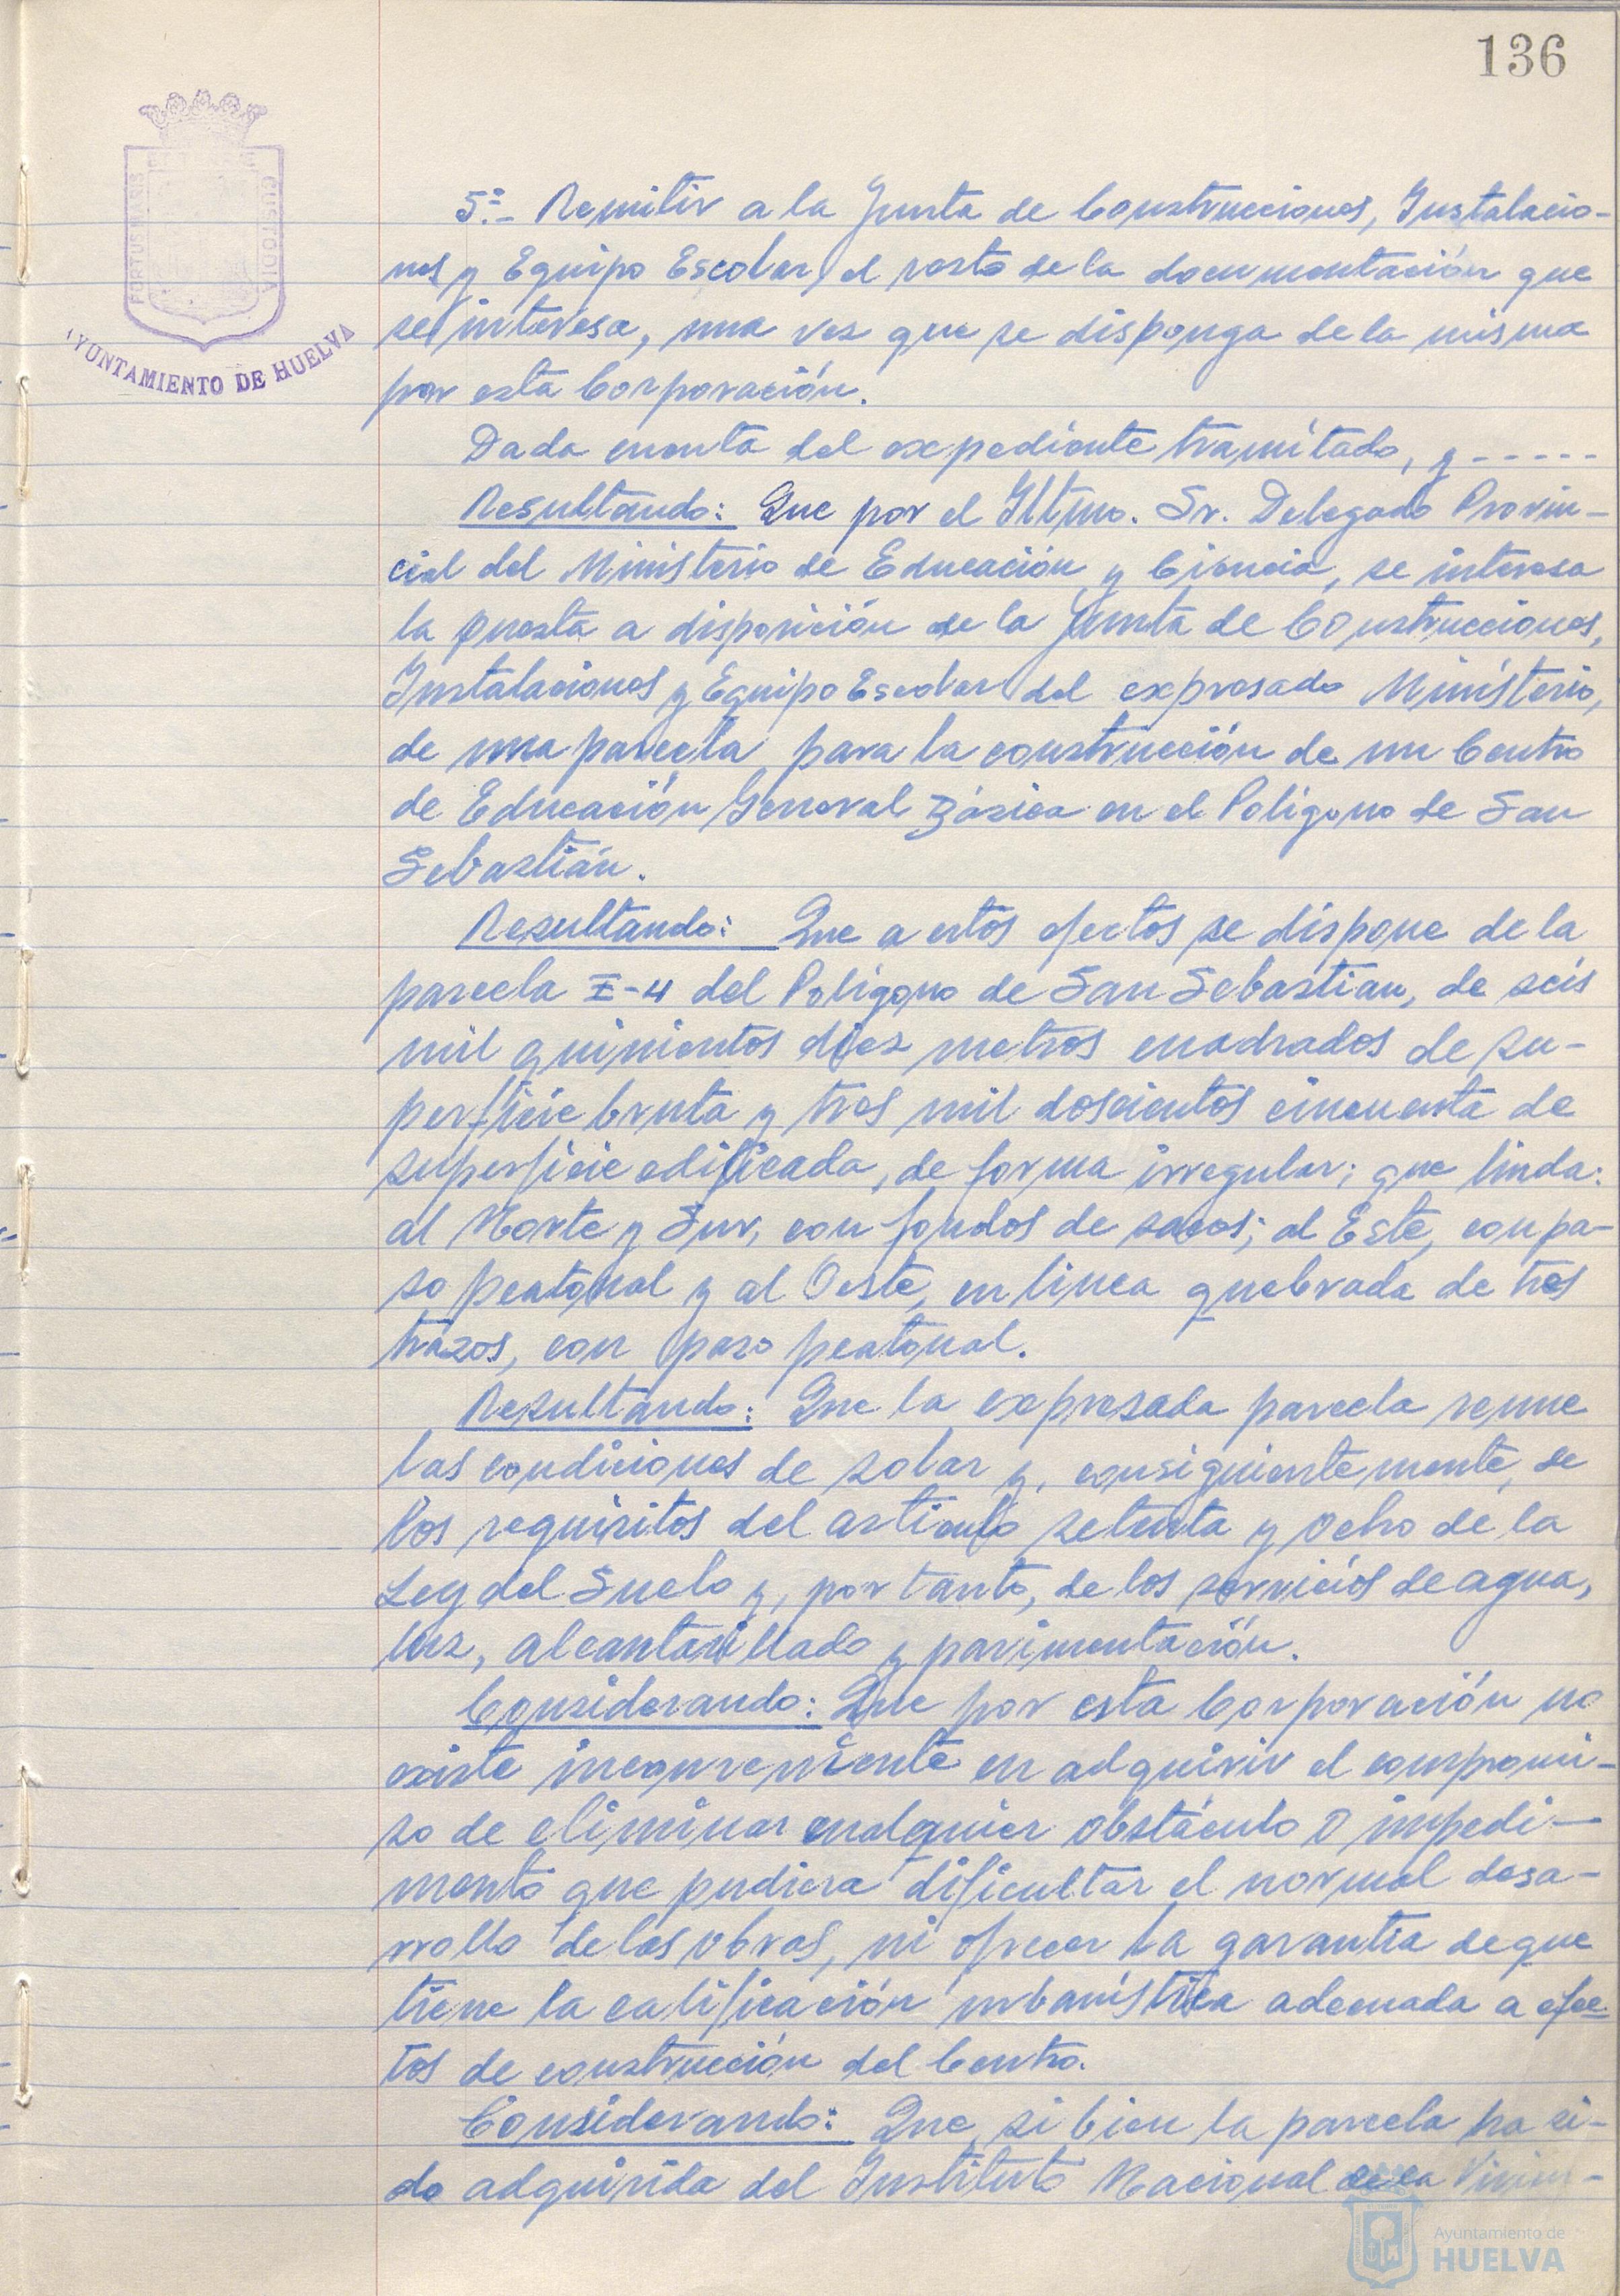 136
PORTUS MARIS
CUSTODIA
AYUNTAMIENTO DE HUELVA
5º.- Remitir a la Junta de Construcciones, Instalacio-
nes y Equipo Escolar, el resto de la documentación que
se interesa, una vez que se disponga de la misma
por esta Corporación.
Dada cuenta del expediente tramitado, y -----
Resultando: Que por el Iltmo. Sr. Delegado Provin-
cial del Ministerio de Educación y Ciencia, se interesa
la puesta a disposición de la Junta de Construcciones,
Instalaciones y Equipo Escolar del expresado Ministerio,
de una parcela para la construcción de un Centro
de Educación General Básica en el Polígono de San
Sebastián.
Resultando: Que a estos efectos se dispone de la
parcela I-4 del Polígono de San Sebastian, de seis
mil quinientos diez metros cuadrados de su-
perficie bruta y tres mil doscientos cincuenta de
superficie edificada, de forma irregular; que linda:
al Norte y Sur, con fondos de sacos; al Este, con pa-
so peatonal y al Oeste, en linea quebrada de tres
trazos, con paso peatonal.
Resultando: Que la expresada parcela reune
las condiciones de solar y, consiguientemente, de
los requisitos del artículo setenta y ocho de la
Ley del Suelo y, por tanto, de los servicios de agua,
luz, alcantarillado y pavimentación.
Considerando: Que por esta Corporación no
existe inconveniente en adquirir el compromi-
so de eliminar cualquier obstáculo o impedi-
mento que pudiera dificultar el normal desa-
rrollo de las obras, ni ofrecer la garantía de que
tiene la calificación urbanística adecuada a efec-
tos de construcción del Centro.
Considerando: Que, si bien la parcela ha si-
do adquirida del Instituto Nacional de la Vivien-
Ayuntamiento de
HUELVA